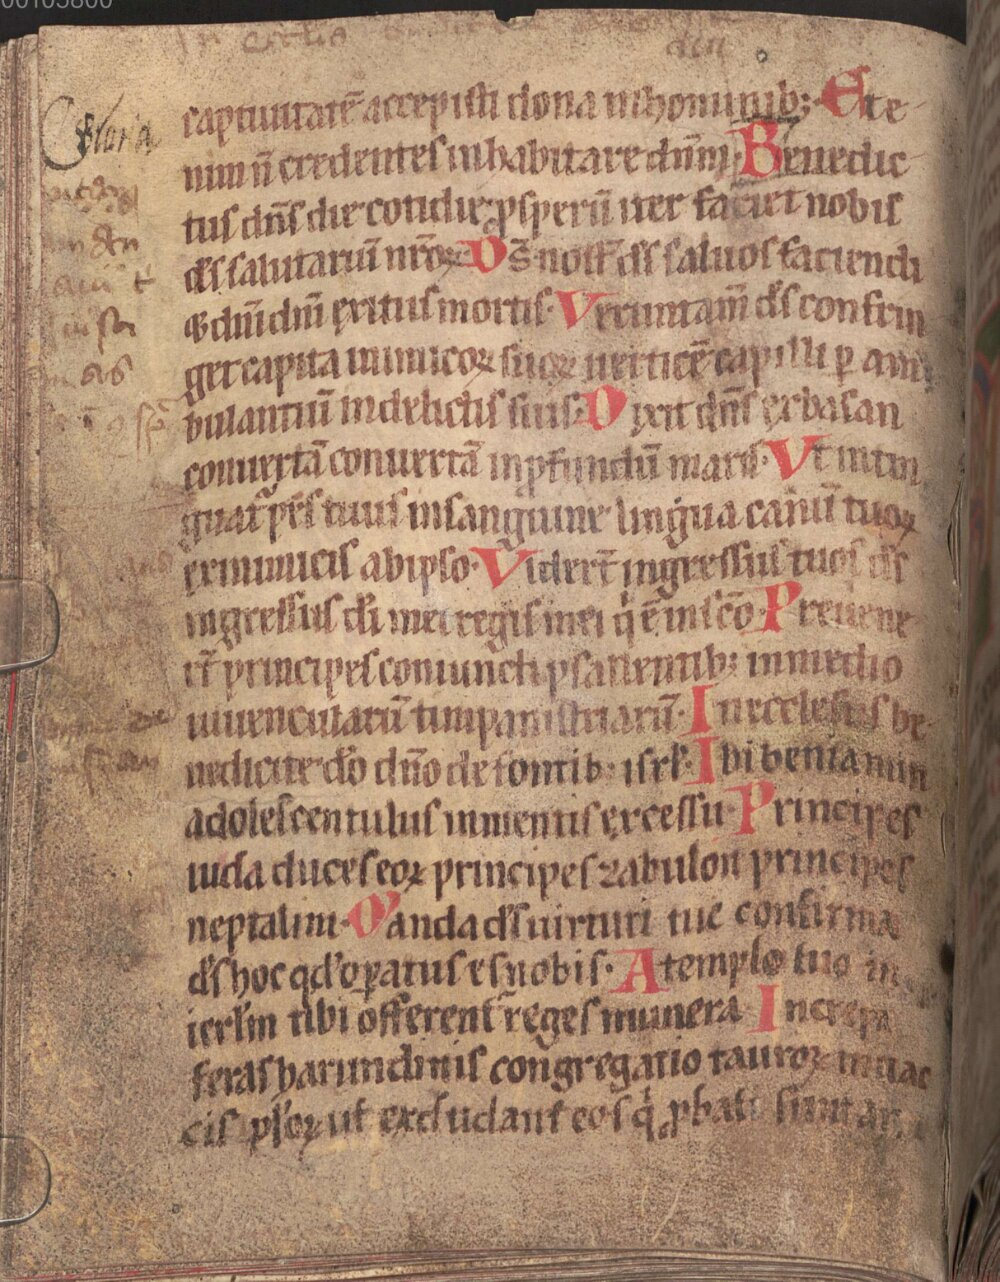 00105800
Gloria
captiuitatē accepisti dona inhominib; Ete-
nim ñ credentes inhabitare dnm̄· Benedic-
tus dn̄s die cotidie; ꝓsperū iter faciet nobis
ds̄ salutariū nr̄oꝝ Ds̄ nost̄ ds̄ saluos faciendi
⁊ dn̄i dn̄i exitus mortis· Veruntam̄ ds̄ confrin
get capita inimicoꝝ suoꝝ uerticē capilli ꝑam
bulantiū indelictis suis· Dixit dn̄s exbasan
conuertā conuertā inꝓfundū maris· Vt intin
guat᷑ pes tuus insanguine lingua canū tuoꝝ
exinimicis abipso· Vider̄t ingressus tuos ds̄
ingressus di̅ mei regis mei q̇ ē insc̄o Preuene
rt̄ principes coniuncti psallentib; inmedio
iuuencularū timpanistriarū· In ecclesiis be-
nedicite dō dn̄o de fontib· isrl̄· Ibi beniamin
adolescentulus inmentis excessu· Principes
iuda duces eoꝝ principes zabulon principes
neptalim· Manda ds̄ uirtuti tue confirma
ds̄ hoc qd̄ oꝑatus es nobis· A templo tuo in
ierlm̄ tibi offerent᷑ reges munera Increpa
feras harundinis congregatio tauroꝝ inuac
cis pl̄oꝝ ut excludant eos q̇ ꝓbati sunt ar